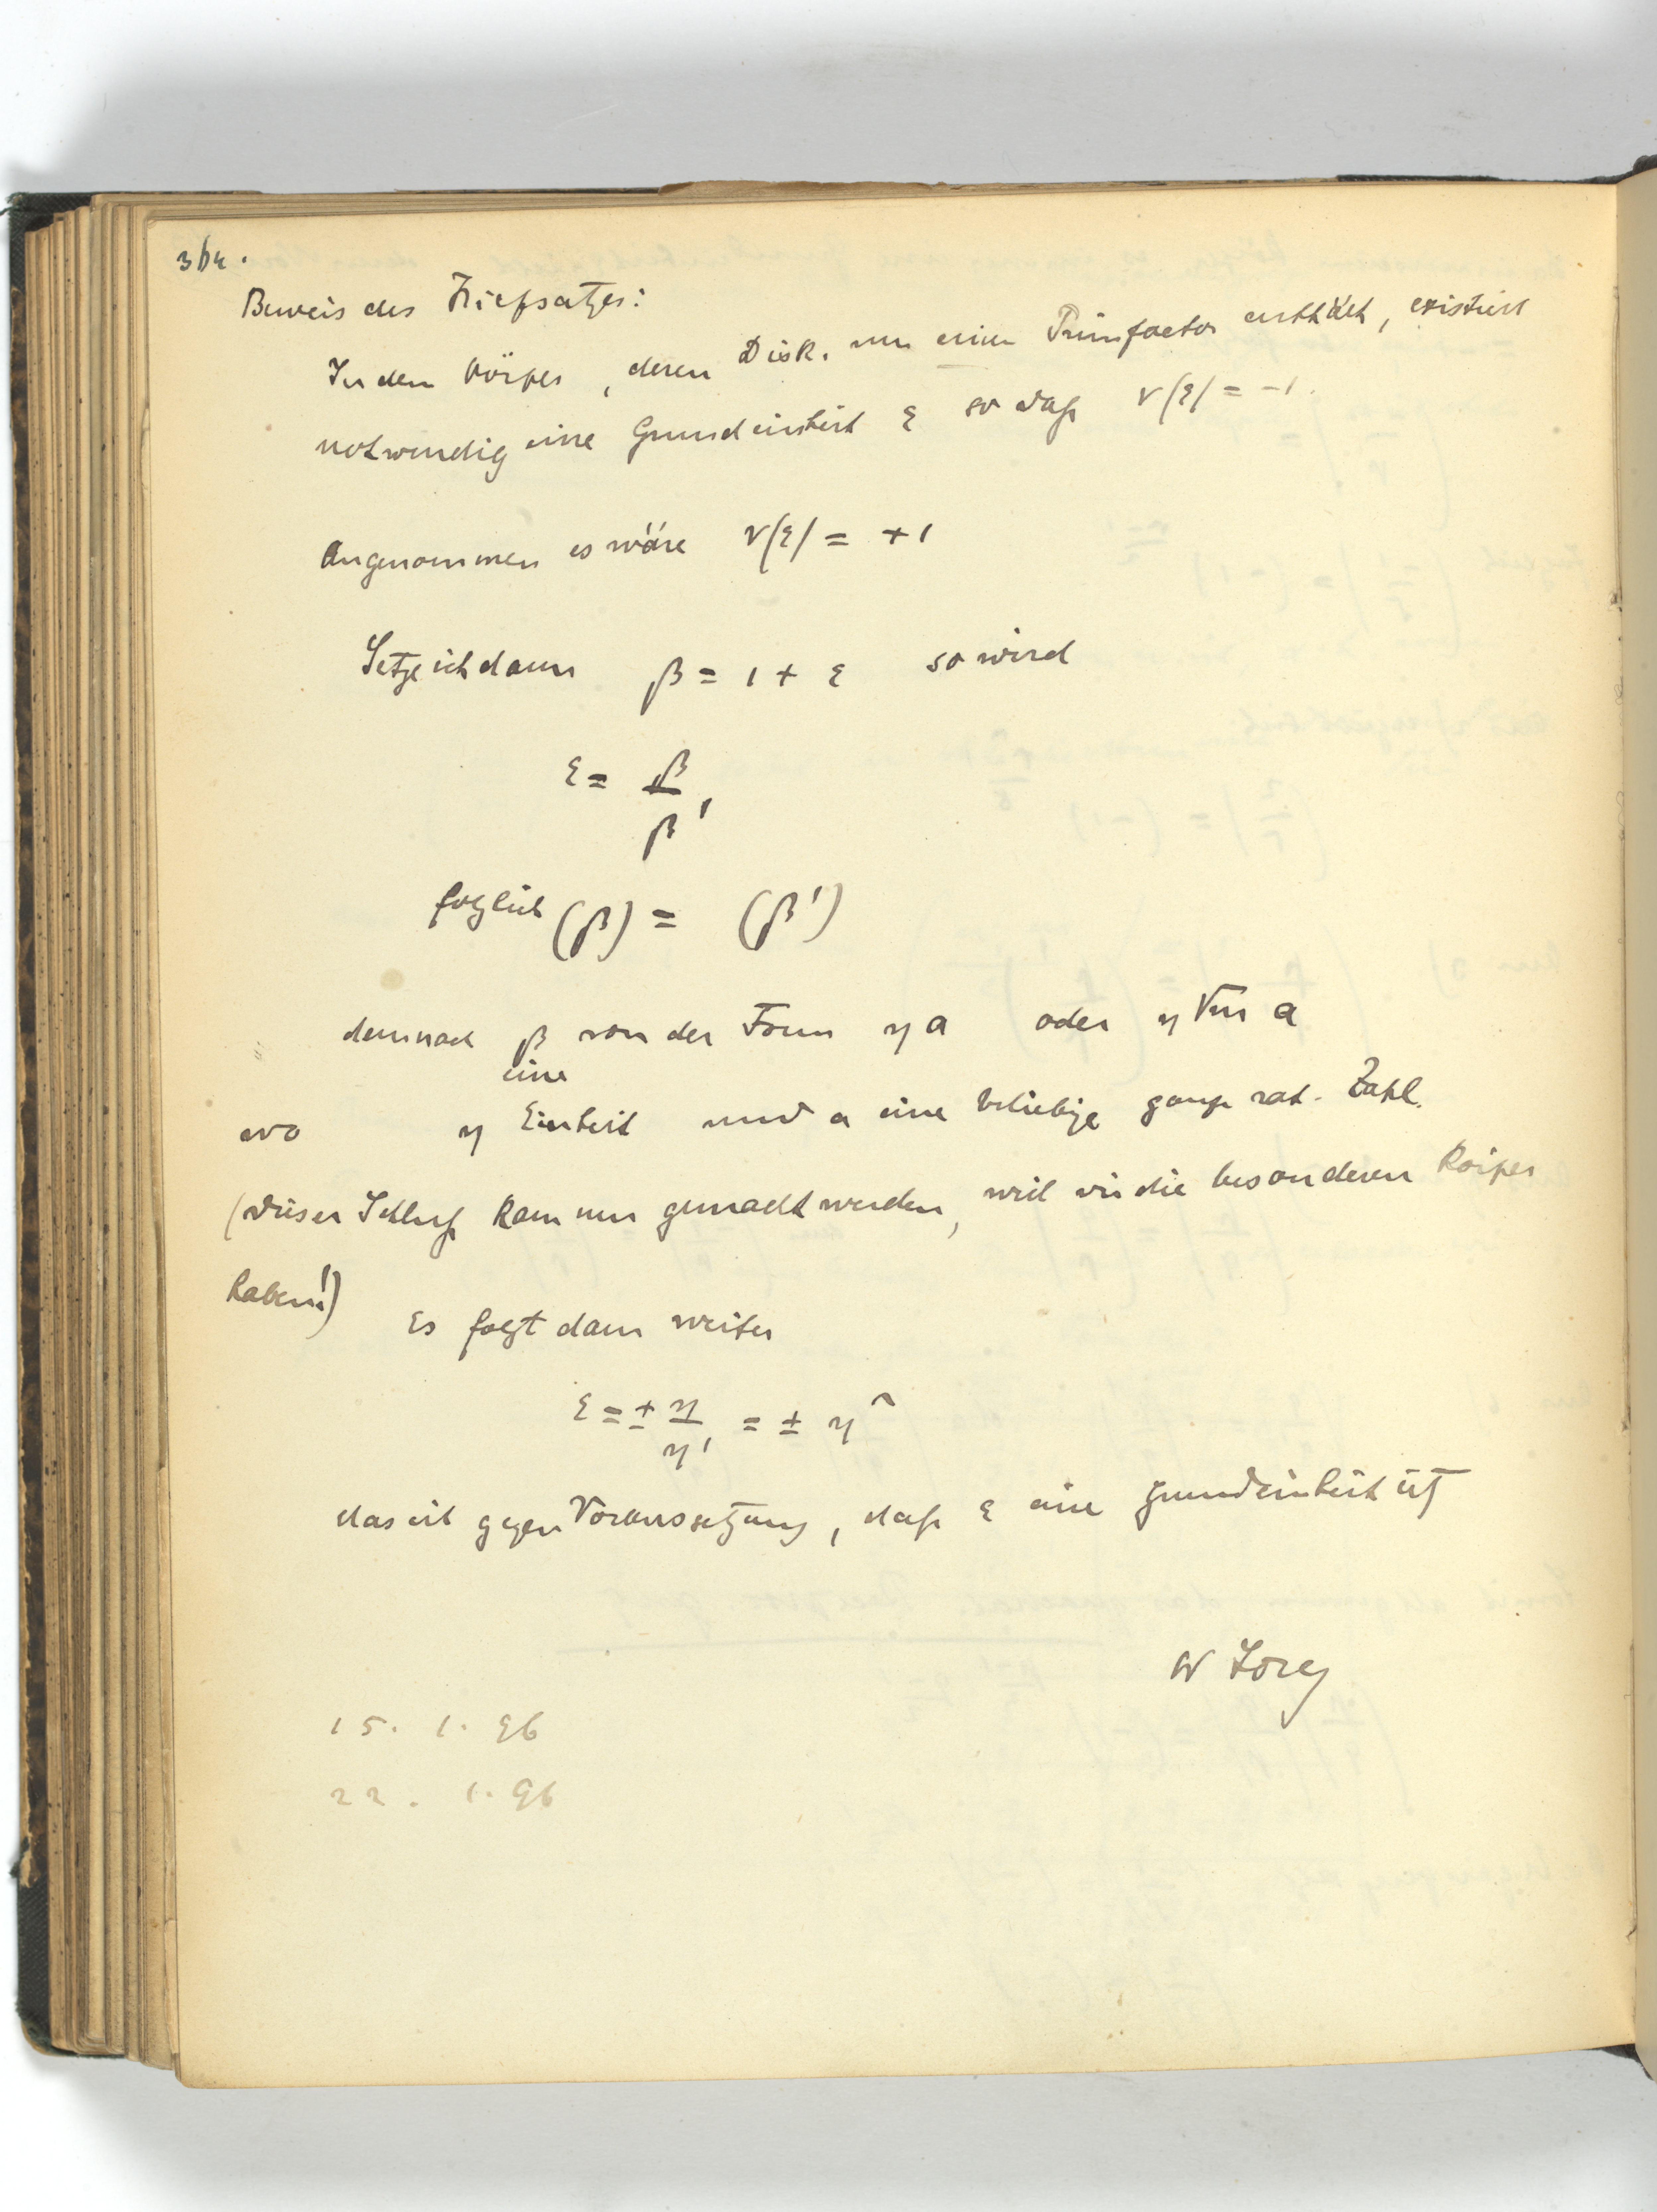 364.
Beweis des Hilfssatzes:
In dem Körper, deren Disk. nur einen Primfactor enthält, existiert
notwendig eine Grundeinheit ε so daß ν(ε) = -1.
Angenommen es wäre ν(ε) = +1
Setze ich dann β = 1 + ε so wird
ε = β/β'
folglich (β) = (β')
demnach β von der Form η a oder η √m a
eine
wo η Einheit und a eine beliebige ganze rat. Zahl.
(dieser Schluß kann nur gemacht werden, weil wir die besonderen Körper
haben!)
Es folgt dann weiter
ε = ± η/η' = ± η²
das ist gegen Voraussetzung, daß ε eine Grundeinheit ist
W Lorey
15. 1. 96
22. 1. 96